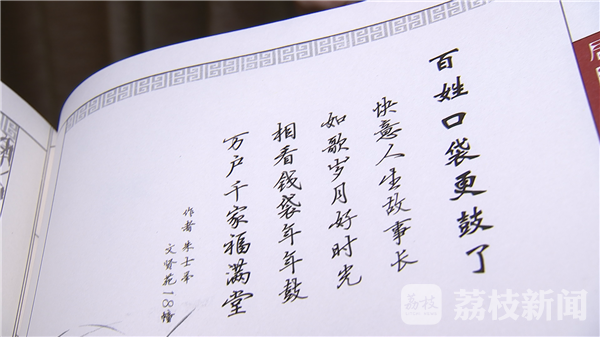 百姓口袋更鼓了
快意人生故事长
如歌岁月好时光
相看钱袋年年鼓
万户千家福满堂
作者 朱士平
文贤苑18幢
荔枝
荔枝新闻